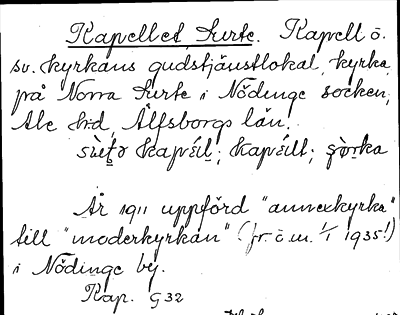 Kapellet, Surte. Kapell o.
sv. kyrkans gudstjänstlokal, kyrka
på Norra Surte i Nödinge socken,
Ale hd, Älfsborgs län.
kapéll;
År 1911 uppförd "annexkyrka"
till "moderkyrkan" (fr. o. m. 1/1 1935!)
i Nödinge by.
Kap. G 32